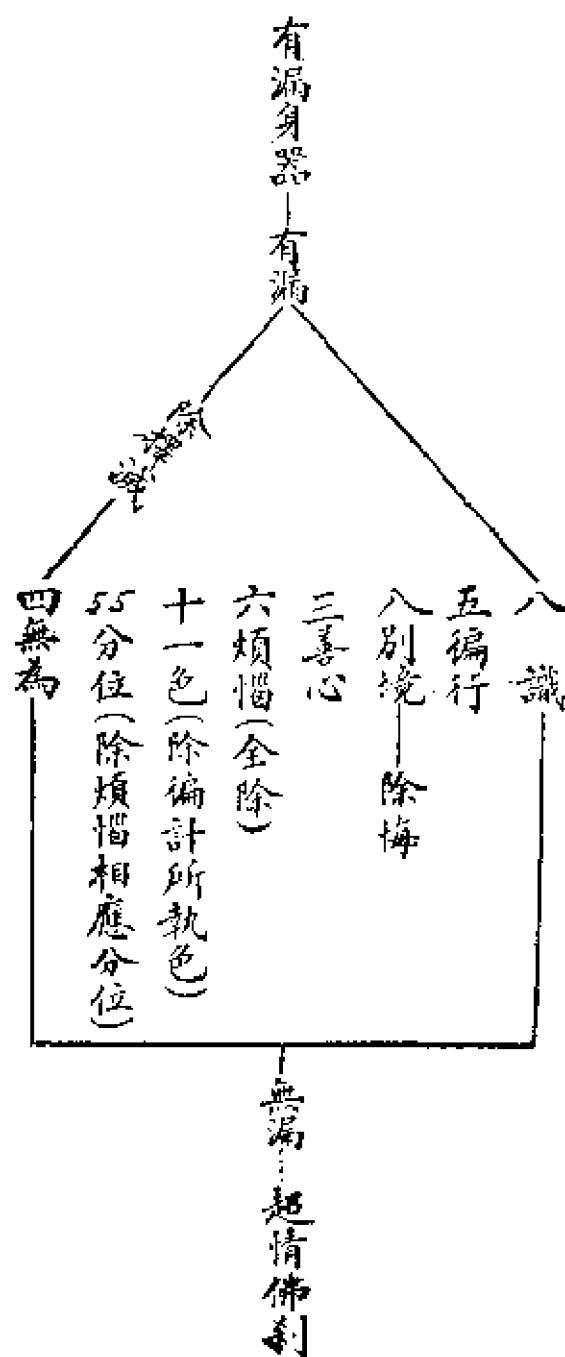 有漏身器—有漏
八識
五徧行
八別境—除悔
三善心
六煩惱(全除)
十一色(除徧計所執色)
55分位(除煩惱相應分位)
四無為
無漏…超情佛剎